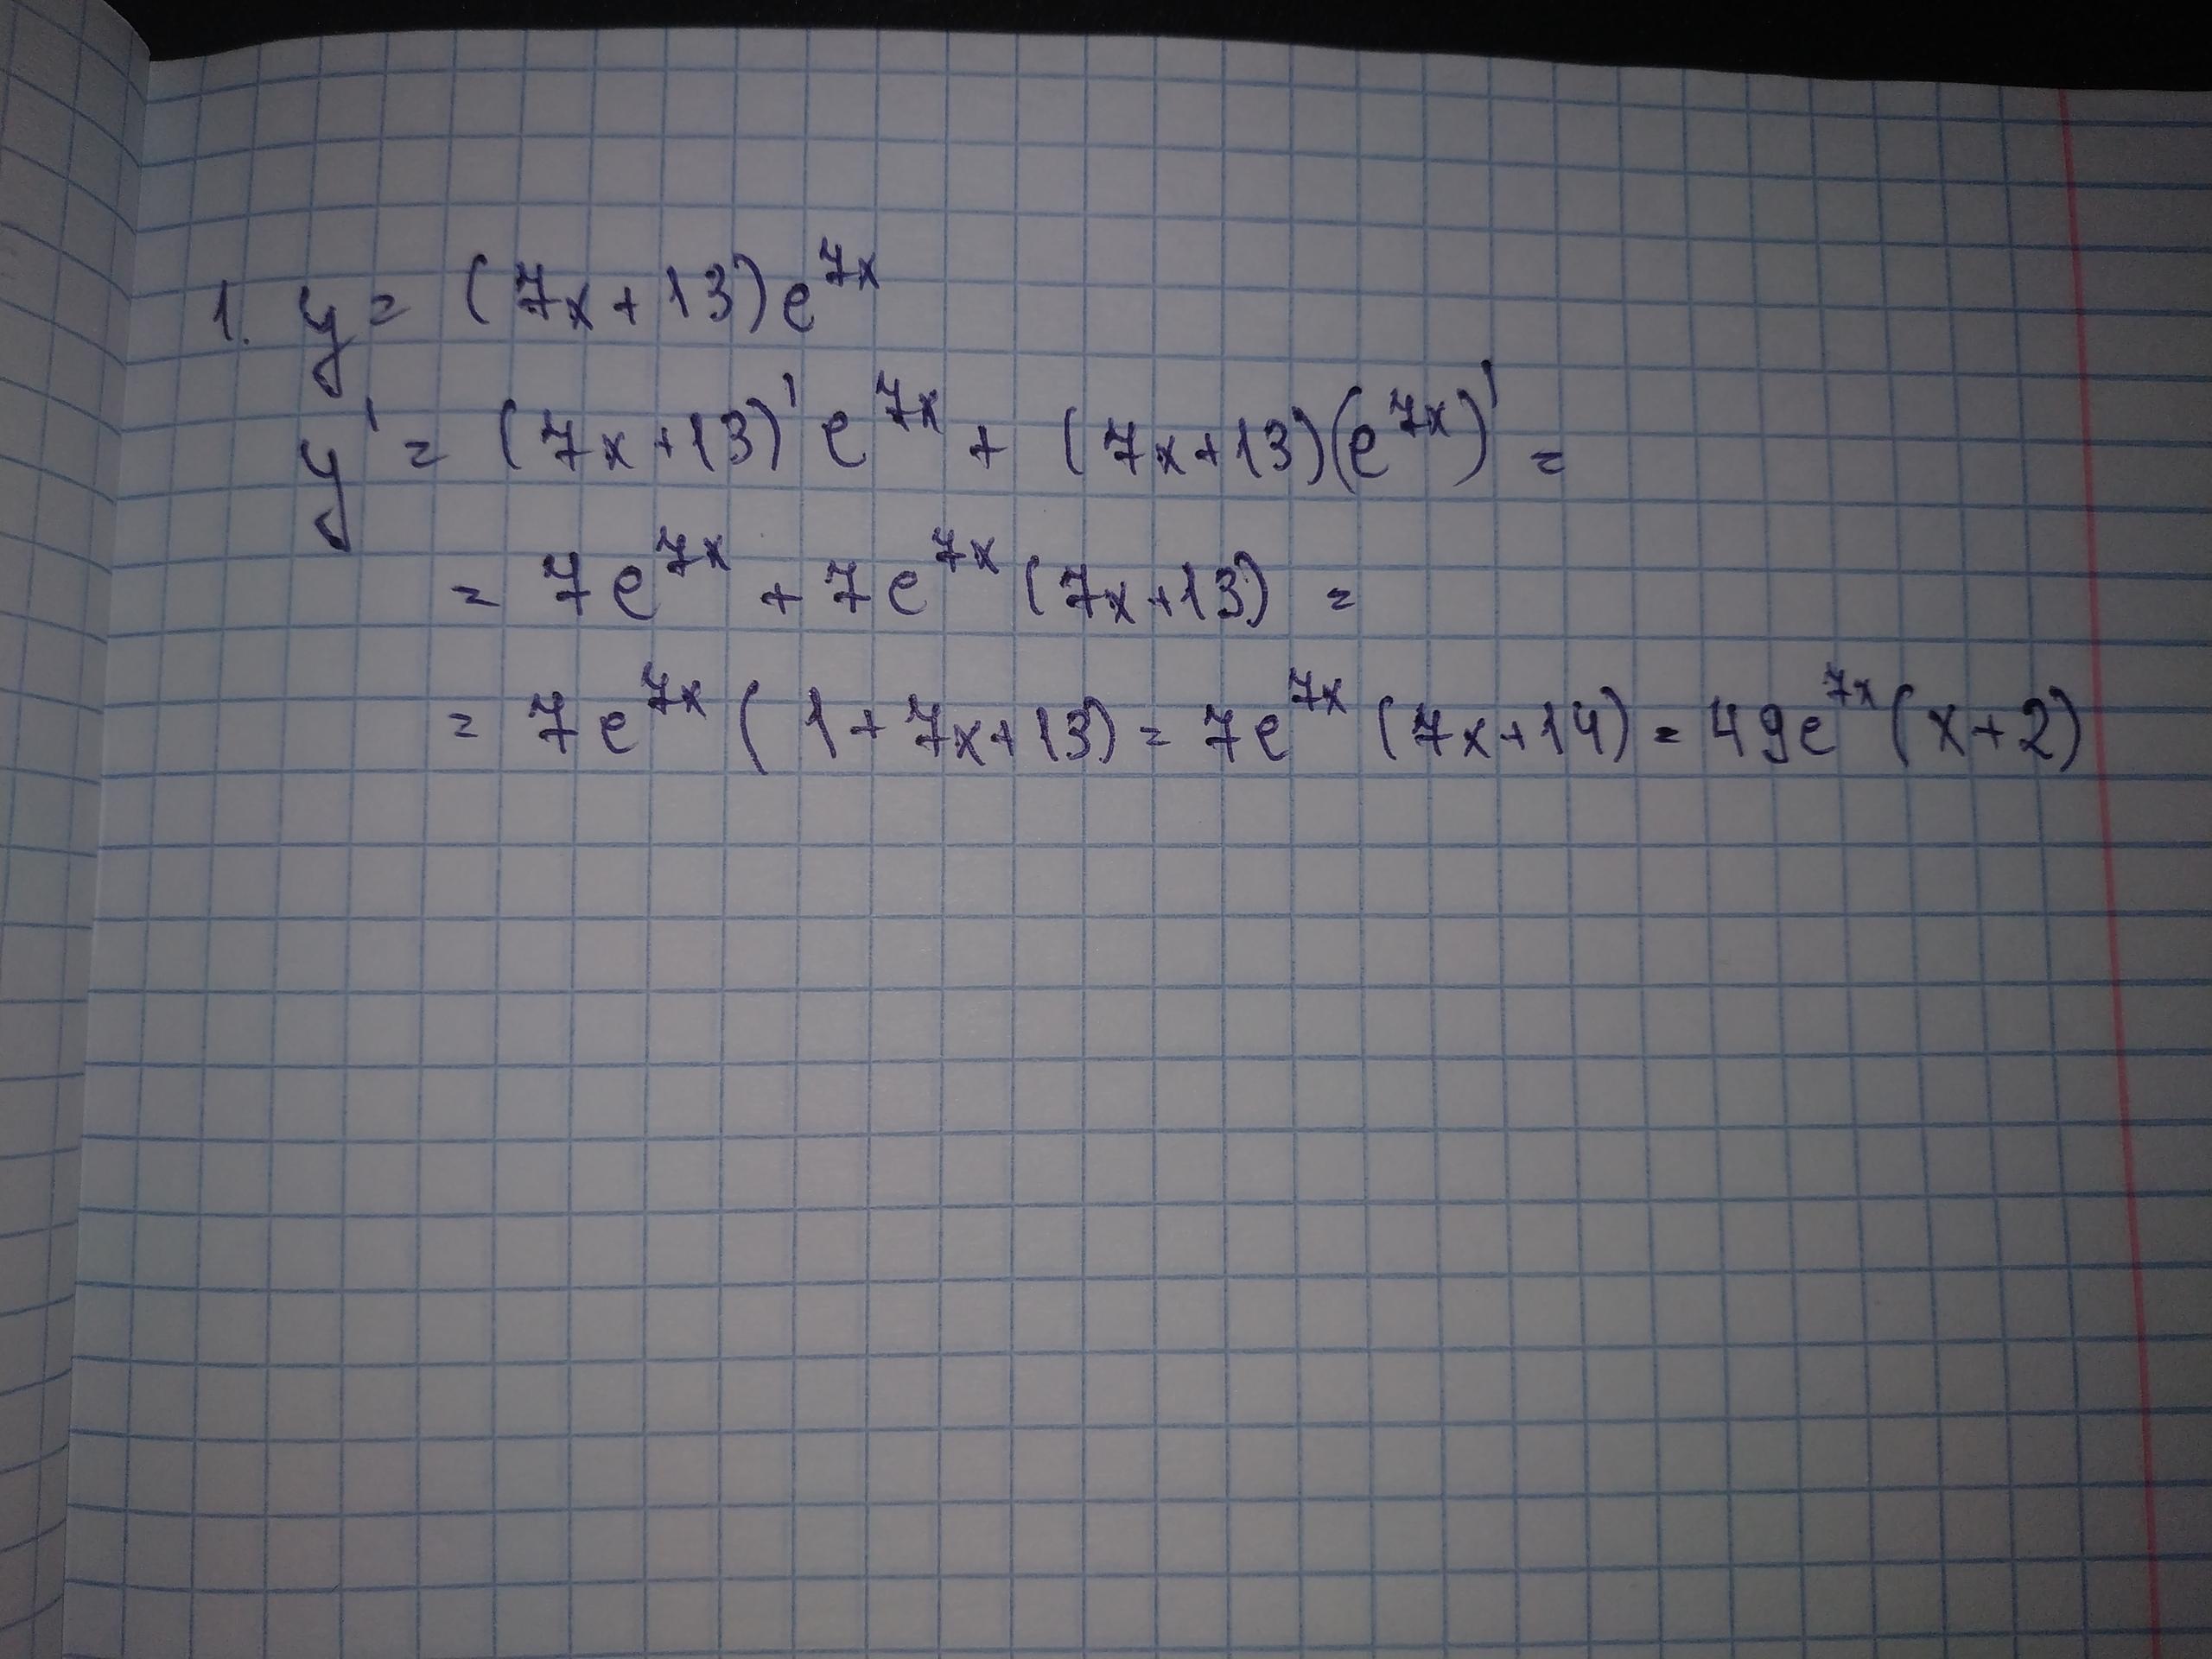 1. y = (7x+13)e^{7x}
y' = (7x+13)' e^{7x} + (7x+13)(e^{7x})' =
= 7e^{7x} + 7e^{7x} (7x+13) =
= 7e^{7x} (1+7x+13) = 7e^{7x} (7x+14) = 49e^{7x} (x+2)